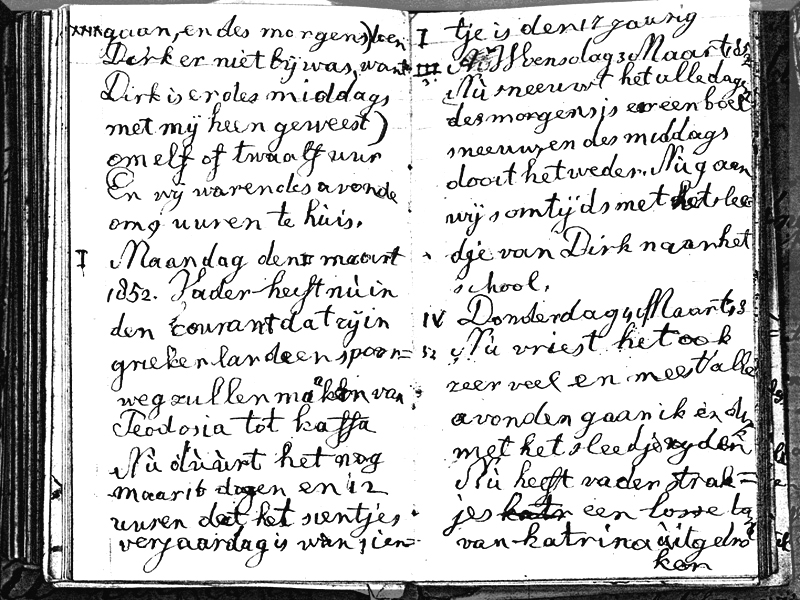 gaan, en des morgens) toen
Dirk er niet bij was, want
Dirk is er des middags
met mij heen geweest)
om elf of twaalf uur
En wij waren des avonds
om 9 uuren te huis.
I Maandag den 1 maart
1852. Vader heeft nù in
den courant dat zij in
griekenland een spoor=
weg zullen maken van
Feodosia tot kaffa
Nù dùùrt het nog
maar 16 dagen en 12
uuren dat het soentjes
verjaardag is van sien=
I tje is den 17 jaarig
III Woensdag 3 Maart 1852
Nù sneeuwt het alle dag
des morgens is er een boel
sneeuw en des middags
dooit het weder. Nù gaan
wij somtijds met het slee
dje van Dirk naar het
school.
IV Donderdag 4 Maart 18
52 Nù vriest het ook
zeer veel en meest alle
avonden gaan ik en
met het sleedje rijden
Nù heeft vader strak=
jes een losse ta
van katrina ùitgetro
ken